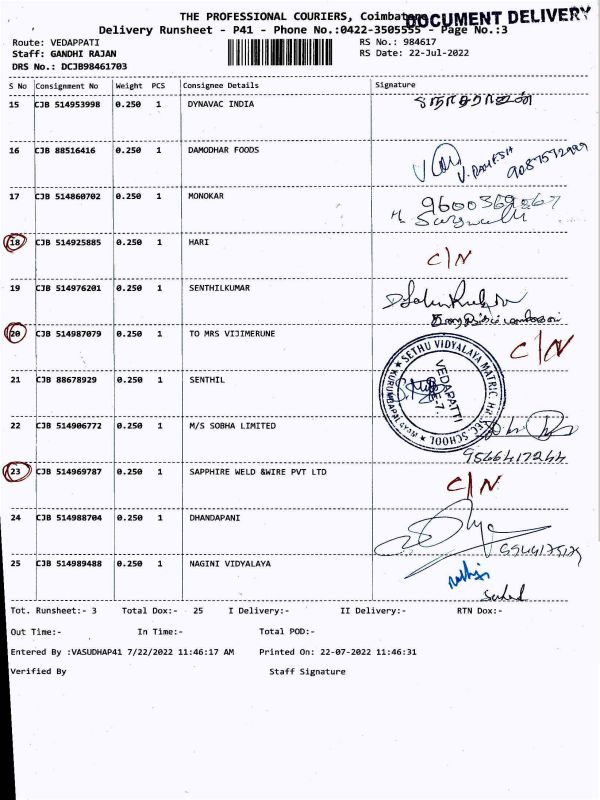 THE PROFESSIONAL COURIERS, Coimbatore
DOCUMENT DELIVERY
Delivery Runsheet - P41 - Phone No.:0422-3505555 - Page No.:3
Route: VEDAPPATI RS No.: 984617
Staff: GANDHI RAJAN RS Date: 22-Jul-2022
DRS No.: DCJB98461703
S No Consignment No Weight PCS Consignee Details Signature
15 CJB 514953998 0.250 1 DYNAVAC INDIA
16 CJB 88516416 0.250 1 DAMODHAR FOODS
V. RAMESH
17 CJB 514860702 0.250 1 MONOKAR
18 CJB 514925885 0.250 1 HARI C/N
19 CJB 514976201 0.250 1 SENTHILKUMAR
20 CJB 514987079 0.250 1 TO MRS VIJIMERUNE C/N
★ SETHU VIDYALAYA MATRIC. HR. SEC. SCHOOL ★
VEDAPATTI
21 CJB 88678929 0.250 1 SENTHIL
22 CJB 514906772 0.250 1 M/S SOBHA LIMITED
9566417244
23 CJB 514969787 0.250 1 SAPPHIRE WELD &WIRE PVT LTD C/N
24 CJB 514988704 0.250 1 DHANDAPANI
25 CJB 514989488 0.250 1 NAGINI VIDYALAYA
Tot. Runsheet:- 3 Total Dox:- 25 I Delivery:- II Delivery:- RTN Dox:-
Out Time:- In Time:- Total POD:-
Entered By :VASUDHAP41 7/22/2022 11:46:17 AM Printed On: 22-07-2022 11:46:31
Verified By Staff Signature